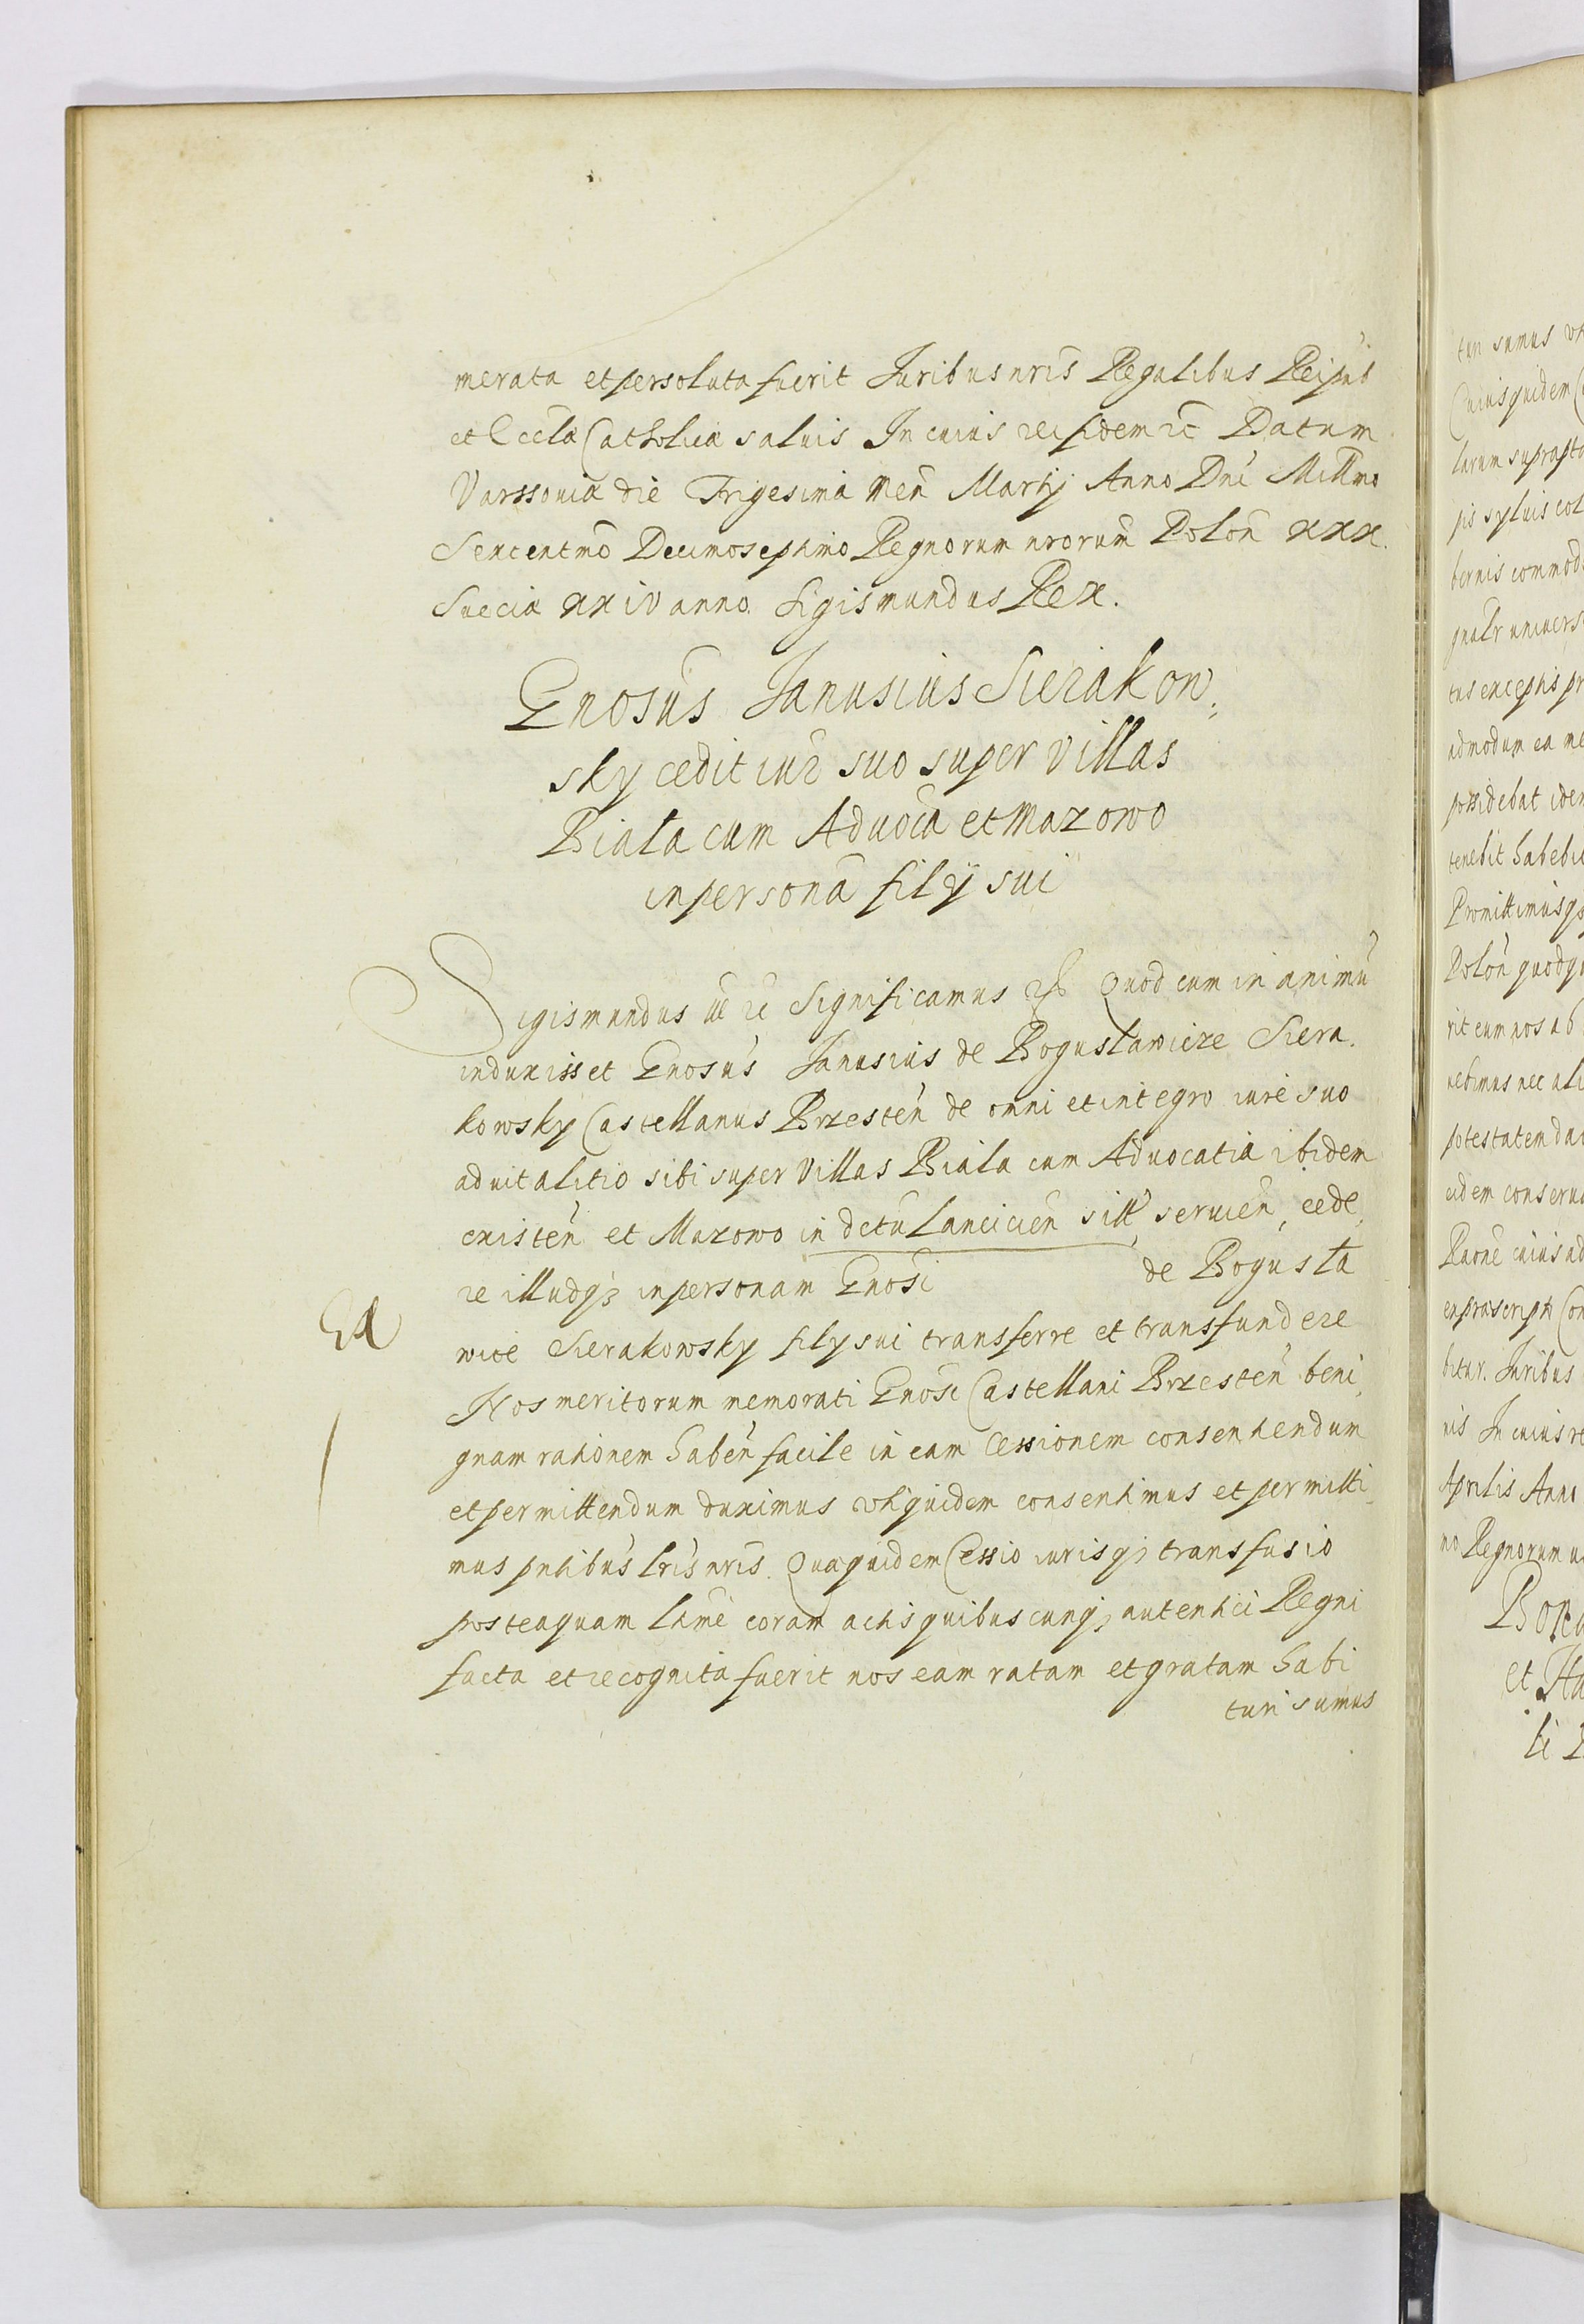 merata et persoluta fuerit Juribus nris Regalibus Reipub
et Eccla Catholica saluis In cuius rei fidem rc Datum
Varssouia die Trigesima Men Martij Anno Dni Millmo
Sexcentmo Decimoseptimo Regnorum nrorum Polon xxx.
Suecia xxiv anno. Sigismundus Rex.
Gnosus Janusius Sierakow,
sky cedit iure suo super villas
Biala cum Aduocia et Mazowo
in persona filij sui
Sigismundus Significamus Quod cum in animu
induxisset Gnosus Janusius de Boguslawicze Siera.
kowsky Castellanus Brzesten de omni et integro iure suo
aduitalitio sibi super villas Biala cum Aduocatia ibidem
existen et Mazowo in dctu Lancicien sitt seruien, cede,
re illudq3 in personam Gnosi de Bogusla
wice Sierakowsky filij sui transferre et transfundere
Nos meritorum memorati Gnosi Castellani Brzesten beni,
gnam rationem haben facile in eam Cessionem consentiendum
et permittendum duximus uti quidem consentimus et permitti,
mus pntibus lris nris. Qua quidem Cessio iurisq3 transfusio
posteaquam ltime coram actis quibuscunq3 autenticis Regni
facta et recognita fuerit nos eam ratam et gratam habi
turi sumus
turi sumus
Cuius quidem
larum suprapta
pis syluis
bernis commod
tus exceptis pr
admodum ea
possidebat idem
tenebit habebit
Promittimusq3
Polon quodq
rit eum nos ab
potestatem
eidem conserua
Raone cuius
ex prascripti Con
bitur. Juribus
nis In cuius re
Aprilis Anno
no Regnorum
et